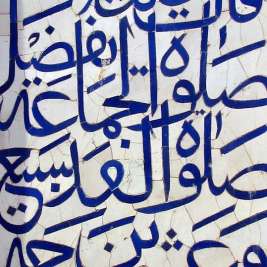 صلوٰة الجماعة تفضل
صلوٰة الفذ بسبع
وعشرين درجة